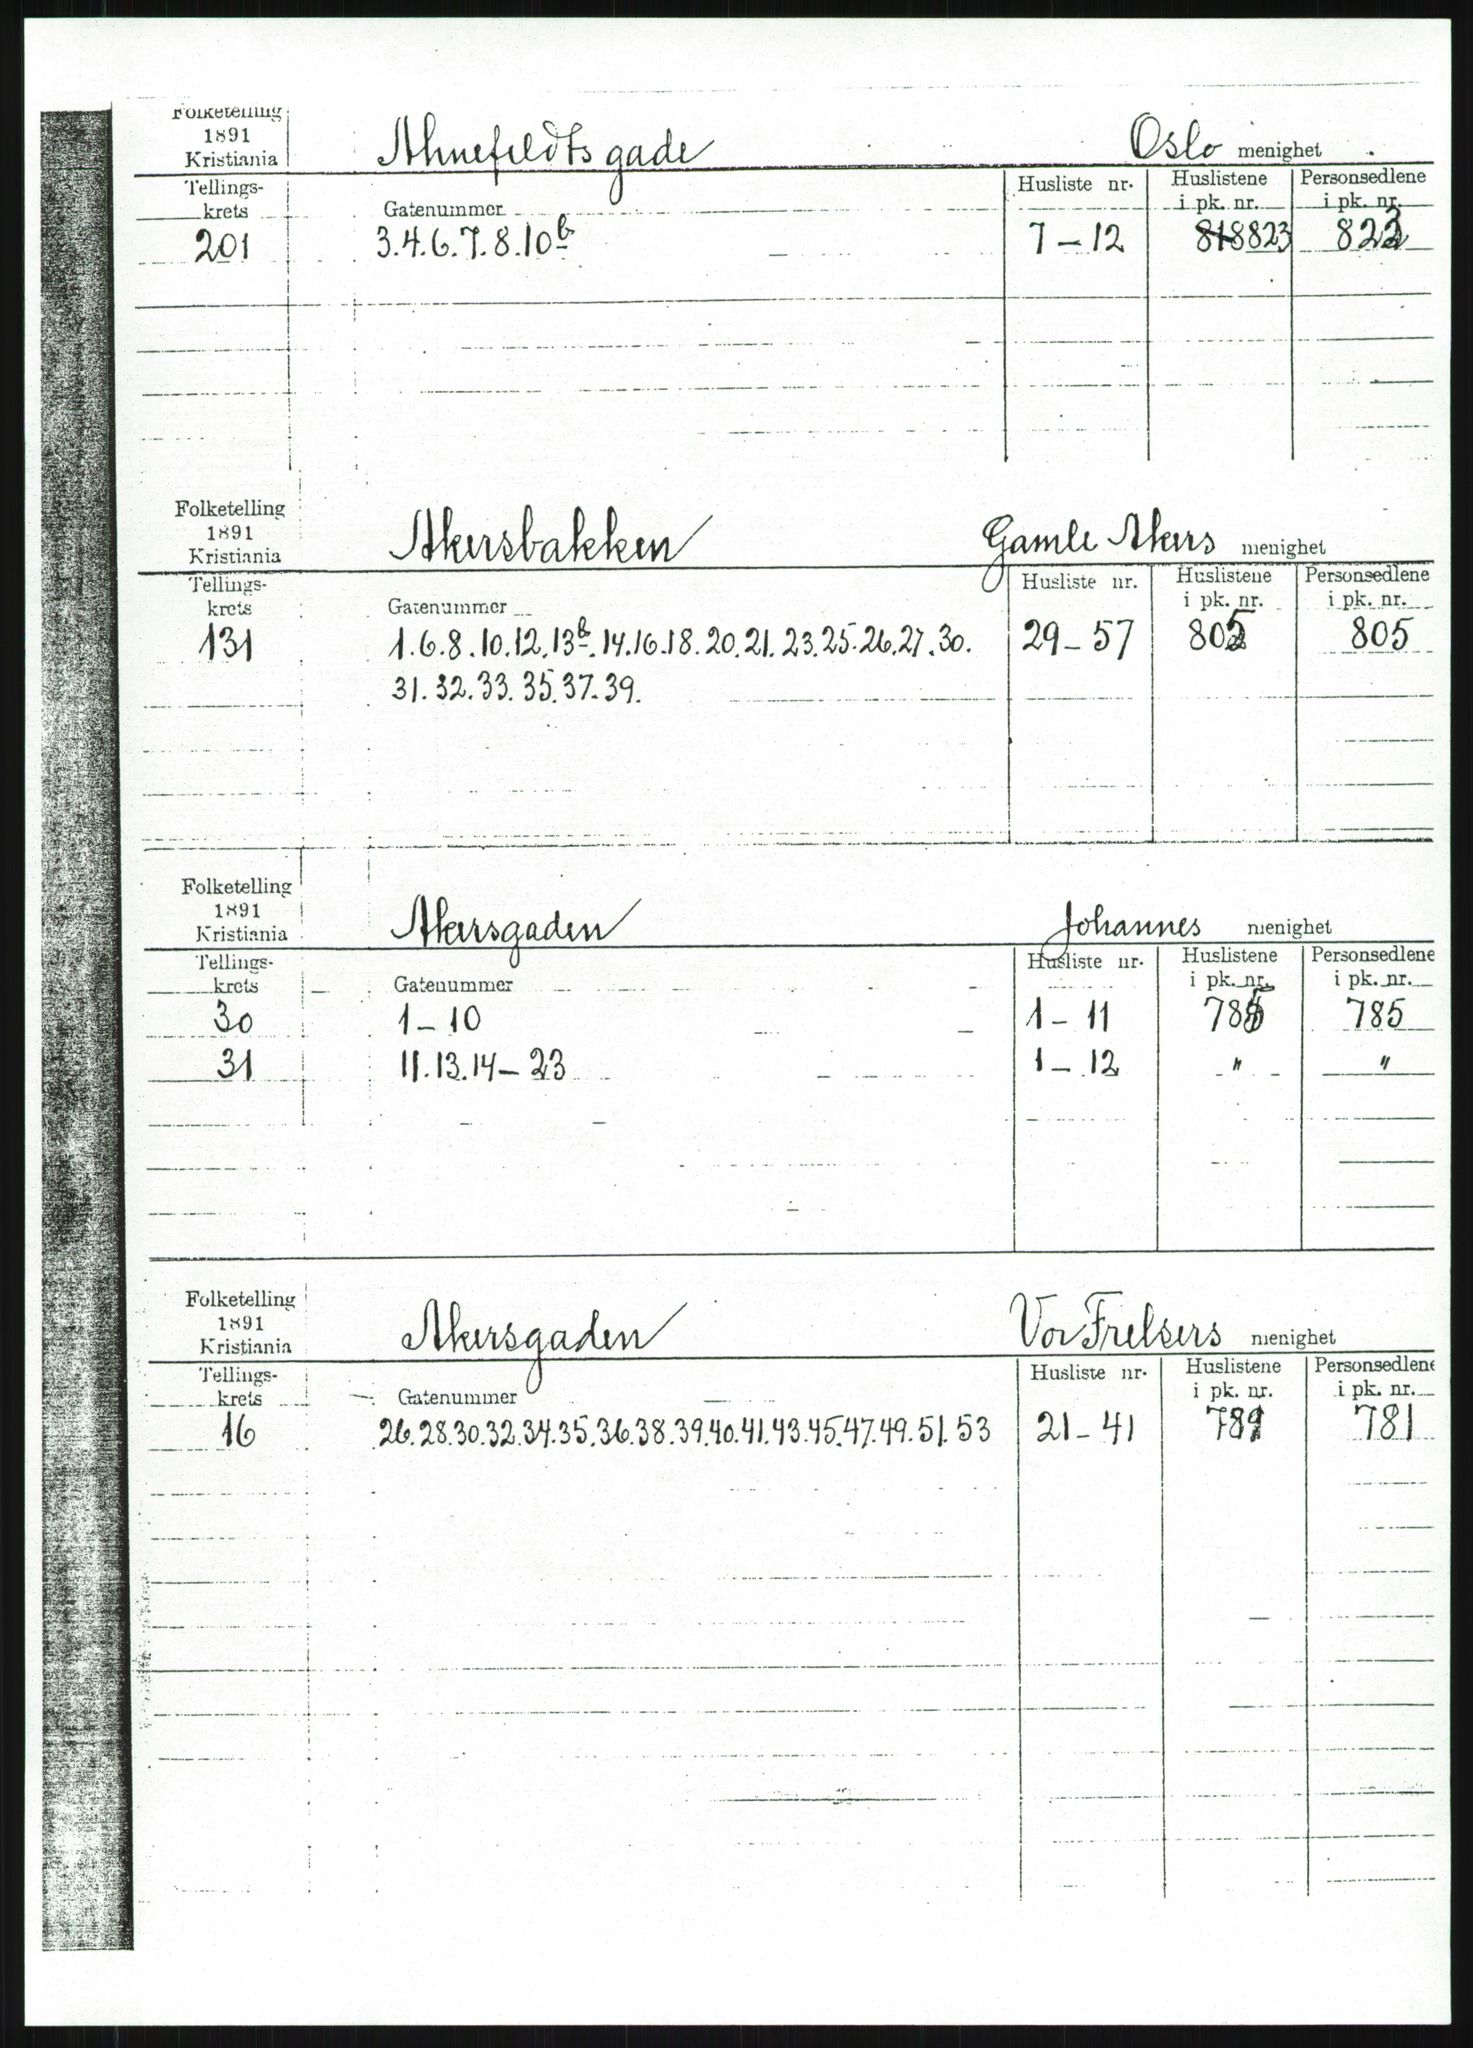 Folketelling
1891
Kristiania
Ahnefeldts gade
Oslo menighet
Tellings-
krets
Gatenummer
Husliste nr.
Huslistene
i pk. nr.
Personsedlene
i pk. nr.
201
3.4.6.7.8.10b
7-12
818 823
823
Folketelling
1891
Kristiania
Akersbakken
Gamle Akers menighet
Tellings-
krets
Gatenummer
Husliste nr.
Huslistene
i pk. nr.
Personsedlene
i pk. nr.
131
1.6.8.10.12.13b.14.16.18.20.21.23.25.26.27.30.
29-57
805
805
31.32.33.35.37-39.
Folketelling
1891
Kristiania
Akersgaden
Johannes menighet
Tellings-
krets
Gatenummer
Husliste nr.
Huslistene
i pk. nr.
Personsedlene
i pk. nr.
30
1-10
1-11
785
785
31
11.13.14-23
1-12
"
"
Folketelling
1891
Kristiania
Akersgaden
Vor Frelsers menighet
Tellings-
krets
Gatenummer
Husliste nr.
Huslistene
i pk. nr.
Personsedlene
i pk. nr.
16
26.28.30.32.34.35.36.38.39.40.41.43.45.47.49.51.53
21-41
781
781